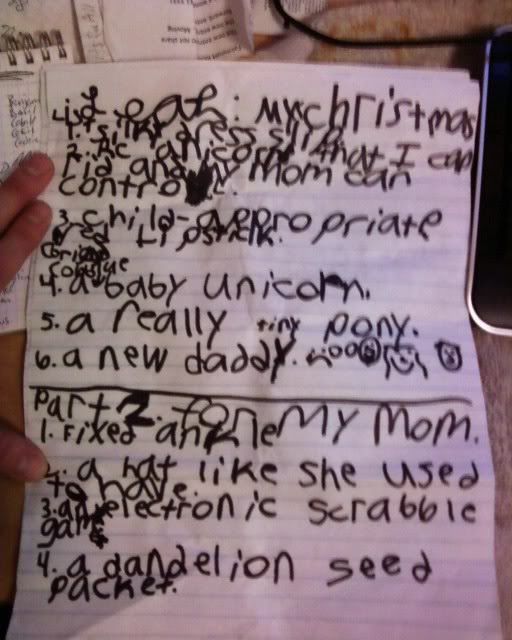 my christmas
1. silky dress slip
2. unicorn that I can
rid and my mom can
control.
3. child-appropriate
red Lipstick.
4. a baby unicorn.
5. a really tiny pony.
6. a new daddy.
part 2. for my mom.
1. Fixed ankle
2. a hat like she used
to have.
3. an electronic scrabble
game
4. a dandelion seed
packet.